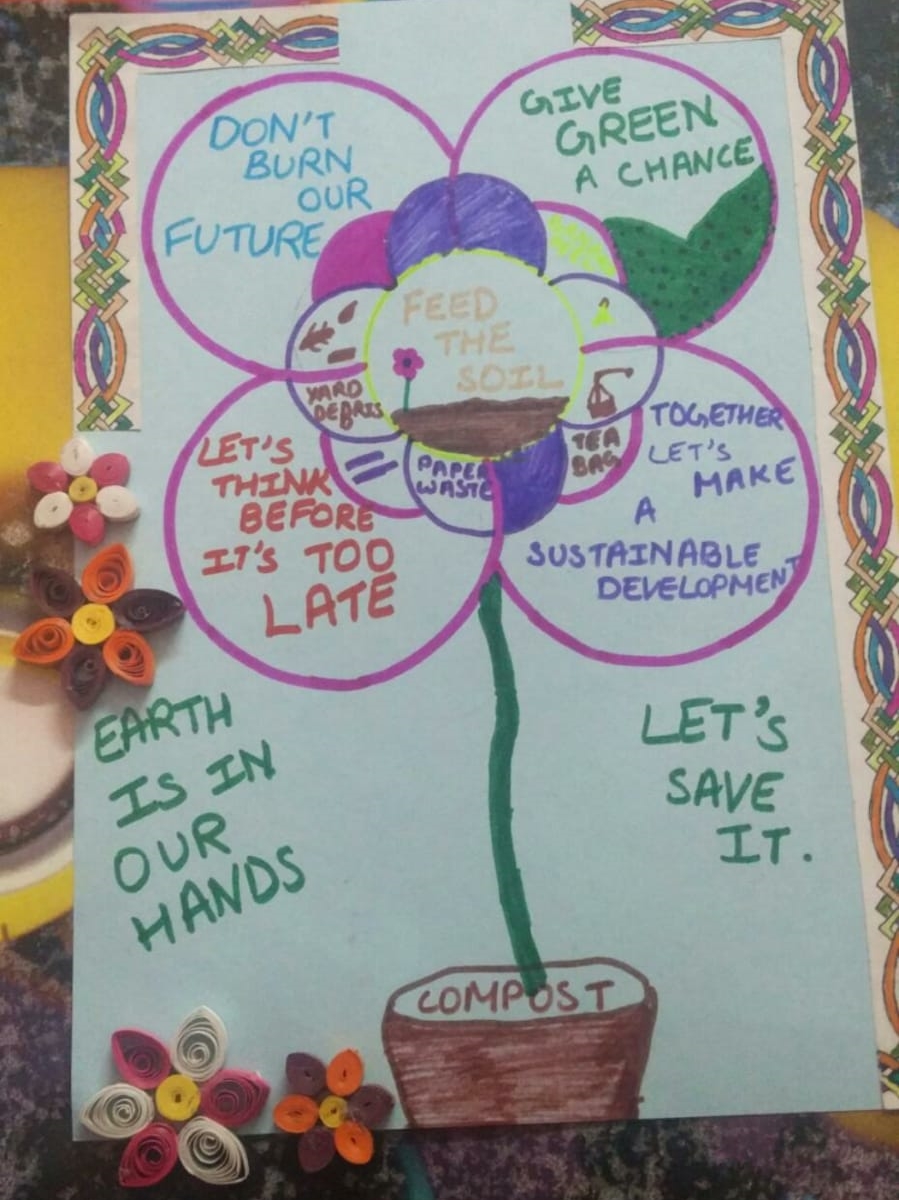 DON'T
BURN
OUR
FUTURE
GIVE
GREEN
A CHANCE
FEED
THE
SOIL
YARD
DEBRIS
PAPER
WASTE
TEA
BAG
LET'S
THINK
BEFORE
IT'S TOO
LATE
TOGETHER
LET'S
MAKE
A
SUSTAINABLE
DEVELOPMENT
EARTH
IS IN
OUR
HANDS
LET'S
SAVE
IT.
COMPOST